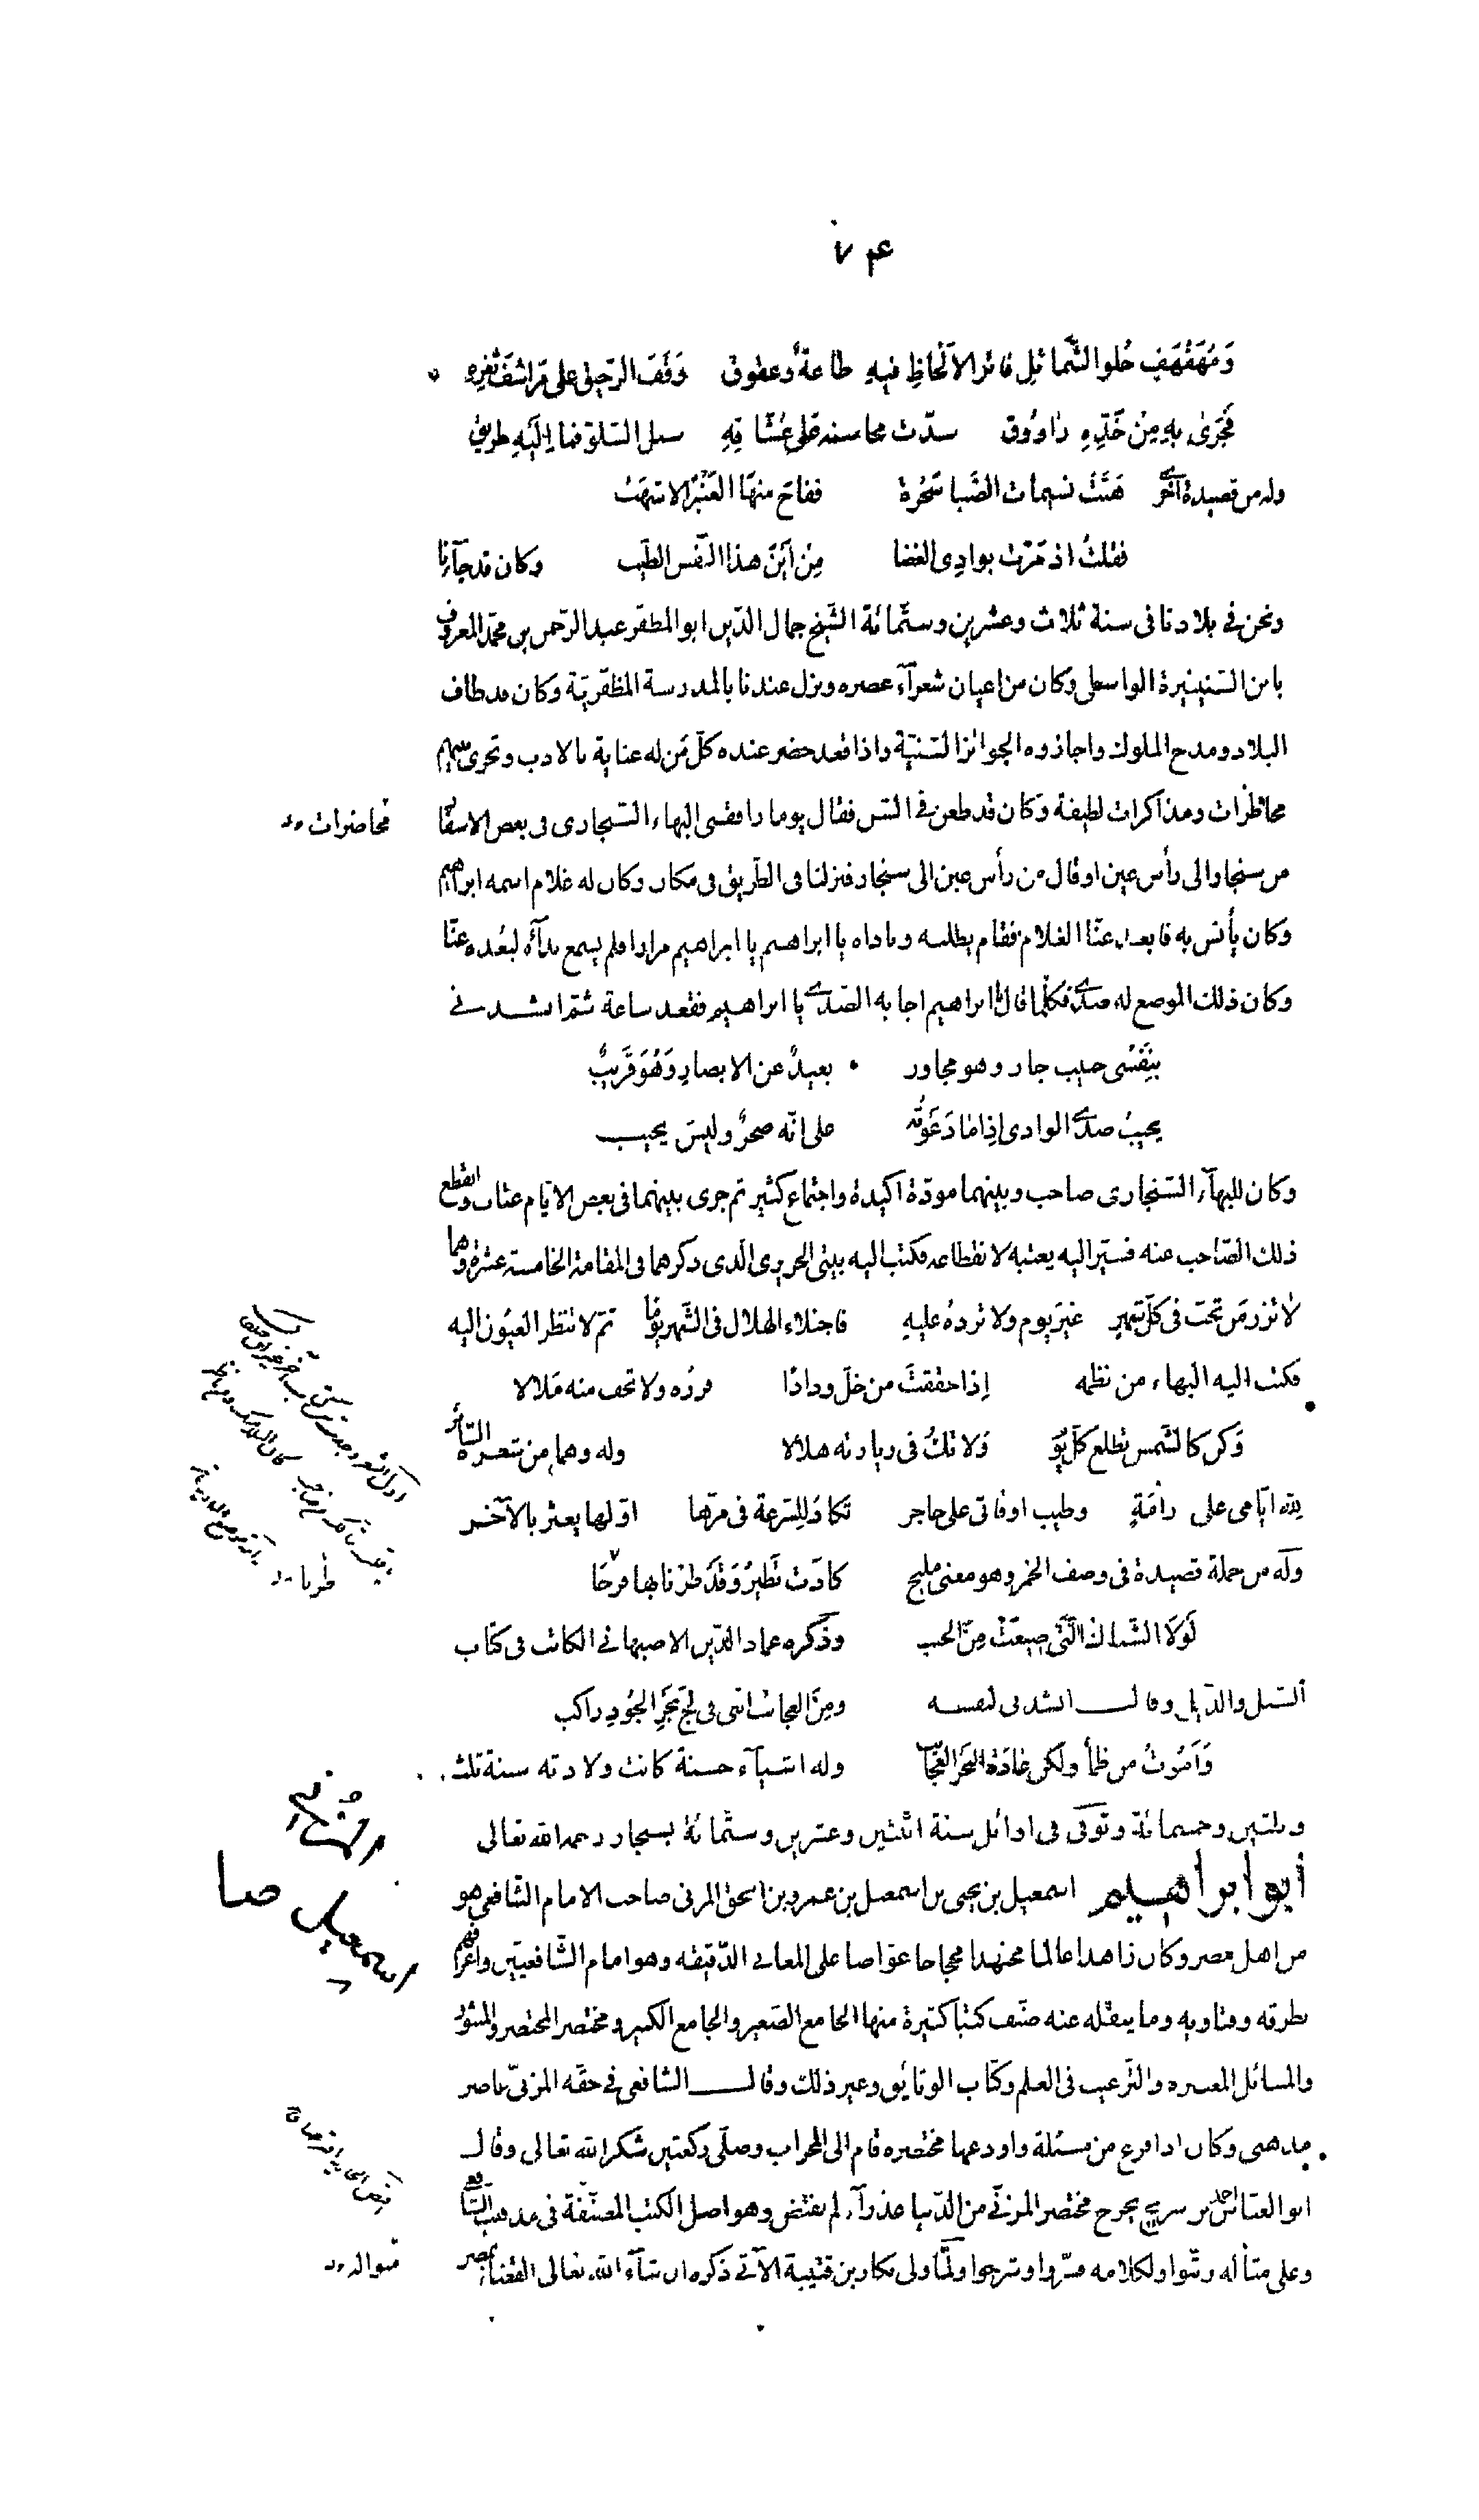 ٧٤
وَمُهَفْهَفٍ حُلوِ الشَّمائلِ فاتر الالْحَاظِ فيهِ طاعةٌ وعقوق وَقَفَ الرّحيقُ على مَراشفِ ثغرِهِ
فجَرَى بهِ مِنْ خَدِّهِ راووق سدّت محاسنه على عُشّاقِهِ سبل السّلوّ فما اليهِ طريق
وله من قصيدة اخرى هَبَّتْ نسيمات الصَّبا سَحْرَة ففاح منهَا العَنْبرُ الاشهَبُ
فقلتُ اذ مَرّت بوادِى الغضا مِنْ اَيْنَ هذا النّفس الطيّب وكان قد جآءَنا
ونحن فى بلادنا فى سنة ثلاث وعشرين وستّمائة الشّيخ جمال الدّين ابو المظفر عبد الرّحمن بن محمّد المعروف
بابن السّنينيرة الواسطى وكان من اعيان شعرآء عصره ونزل عندنا بالمدرسة المظفّريّة وكان قد طاف
البلاد ومدح الملوك واجازوه الجوائز السّنيّة واذا قعد حضر عنده كلّ مَن له عناية بالادب وتجرى بينهم
محاظرات ومذاكرات لطيفة وكان قد طعن فى السّن فقال يوما رافقنى البهاء السّنجارى فى بعض الاسفار
محاضرات
من سنجار الى رأس عين او قال من رأس عين الى سنجار فنزلنا فى الطّريق فى مكان وكان له غلام اسمه ابراهيم
وكان يأنس به فابعد عنّا الغلام فقام يطلبه وناداه يا ابراهيم يا ابراهيم مرارا فلم يسمع ندآءه لبُعده عنّا
وكان ذلك الموضع له صدى فكلّما قال يا ابراهيم اجابه الصّدى يا ابراهيم فقعد ساعة ثمّ انشدنى
بنَفْسى حبيب جار وهو مجاور بعيدٌ عن الابصارِ وَهُوَ قَرِيبٌ
يجيبُ صدى الوادى اِذا مَا دَعَوْتُه على انّه صخرٌ وليس يجيب
وكان للبهآء السّنجارى صاحب وبينهما مودّة اكيدة واجتماع كثير ثم جرى بينهما فى بعض الايّام عتاب وانقطع
ذلك الصّاحب عنه فسيّر اليه يعتبه لانقطاعه فكتب اليه بيتى الحريرى الّذى ذكرهما فى المقامة الخامسة عشرة وهما
لا تزر مَن تحبّ فى كلّ شهرٍ غيرَ يوم ولا تزدهُ عليهِ فاجتلاء الهلال فى الشّهر يوما ثمّ لا تنظر العيُون اليه
فكتب اليه البهاء من نظمه اِذا حققتَ من خلّ ودادًا فزُره ولا تخف منه مَلالا
وَكن كالشّمس تطلع كلّ يوم وَلا تكُ فى زيارته هلالا وله وهما من شعره السّائر
للّه ايّامى على رامَةٍ وطيب اوقاتى على حاجر تكادُ للسّرعة فى مرّها اوّلها يعثر بالآخر
وله من جملة قصيدة فى وصف الخمر وهو معنى مليح كادَت تَطيرُ وَقَدْ طرنا بها فرحَا
طربا
لَوْلا الشّباك الّتى صيغَتْ مِنَ الحبب وذكره عماد الدّين الاصبهانى الكاتب فى كتاب
السّيل والذّيل وقال انشدنى لنفسه ومِنَ العجائب اننى فى لجّ بَحرِ الجُودِ راكب
وَاَمُوتُ من ظمأ ولكن عَادَة البَحرِ العَجَائب وله اشيآء حسنة كانت ولادته سنة ثلث
وثلثين وخمسمائة وتوفّى فى اوائل سنة اثنتين وعشرين وستّمائة بسنجار رحمه الله تعالى
المُزنى
اسمعيل صا
أبو ابراهيم اسمعيل بن يحيى بن اسمعيل بن عمرو بن اسحق المزنى صاحب الامام الشّافعى هو
من اهل مصر وكان زاهدا عالما مجتهدا محجاجا غوّاصا على المعانى الدّقيقه وهو امام الشّافعيّين واعرفهم
بطرقه وفتاويه وما ينقله عنه صنّف كتبا كثيرة منها الجامع الصّغير والجامع الكبير ومختصر المختصر والمنثور
والمسائل المعتبره والتّرغيب فى العلم وكتاب الوثائق وغير ذلك وقال الشافعى فى حقّه المزنىّ ناصر
مذهبى وكان اذا فرغ من مسئلة واودعها مختصره قام الى المحراب وصلّى ركعتين شكرا لله تعالى وقال
ابو العبّاس احمد بن سريج يخرج مختصر المزنىّ من الدّنيا عذرآء لم يفتض وهو اصل الكتب المصنّفة فى مذهب الشّافعى
وعلى مثاله رتّبوا ولكلامه فسّروا وشرحوا ولمّا ولى بكار بن قتيبة الآتى ذكره ان شآء الله تعالى القضاء بمصر